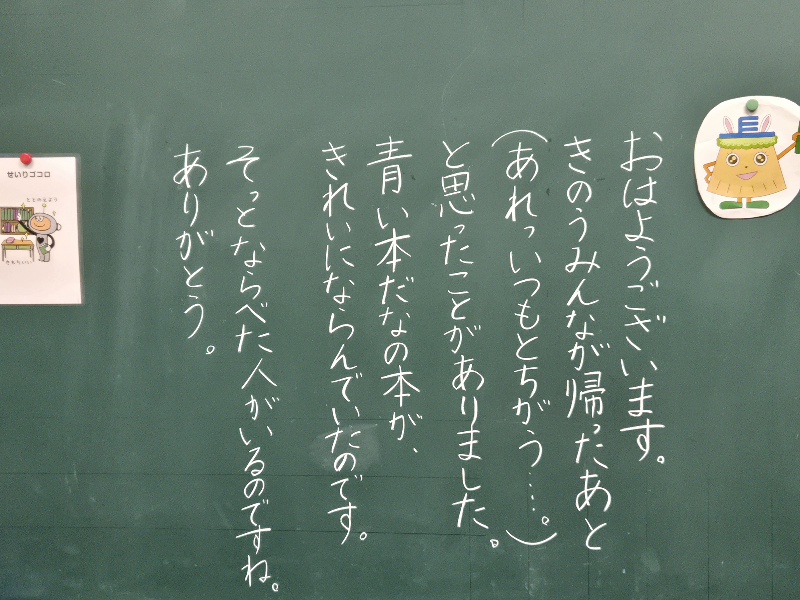 おはようございます。
きのうみんなが帰ったあと
（あれっいつもとちがう…。）
と思ったことがありました。
青い本だなの本が、
きれいにならんでいたのです。
そっとならべた人がいるのですね。
ありがとう。
せいりゴコロ
きもちいい